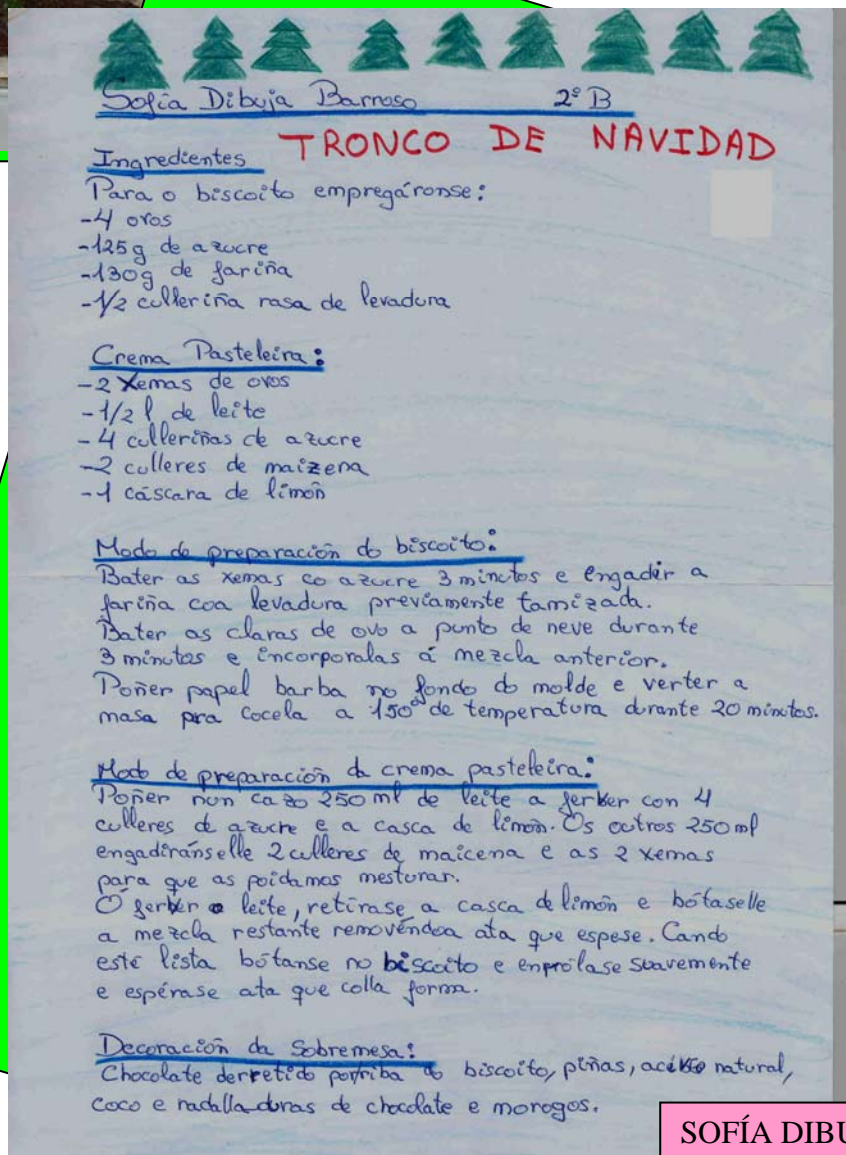 Sofía Dibuja Barroso 2º B
TRONCO DE NAVIDAD
Ingredientes
Para o biscoito empregáronse:
-4 ovos
-125g de azucre
-130g de fariña
-1/2 culleriña rasa de levadura
Crema Pasteleira:
-2 Xemas de ovos
-1/2 l de leite
-4 culleriñas de azucre
-2 culleres de maizena
-1 cáscara de limón
Modo de preparación do biscoito:
Bater as xemas co azucre 3 minutos e engadir a
fariña coa levadura previamente tamizada.
Bater as claras de ovo a punto de neve durante
3 minutos e incorporalas á mezcla anterior.
Poñer papel barba no fondo do molde e verter a
masa pra cocela a 150º de temperatura durante 20 minutos.
Modo de preparación da crema pasteleira:
Poñer nun cazo 250 ml de leite a ferver con 4
culleres de azucre e a casca de limón. Os outros 250 ml
engadiránselle 2 culleres de maicena e as 2 xemas
para que as poidamos mesturar.
Ó ferver o leite, retírase a casca de limón e bótaselle
a mezcla restante removéndoa ata que espese. Cando
esté lista bótanse no biscoito e enrólase suavemente
e espérase ata que colla forma.
Decoración da Sobremesa:
Chocolate derretido porriba do biscoito, piñas, natural,
coco e radalladuras de chocolate e morogos.
SOFÍA DIBU